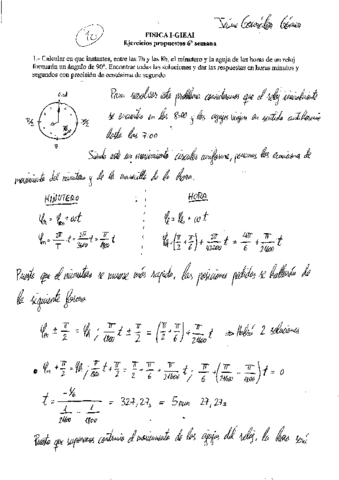 Jaime González Gómez
10
FISICA I-GIEAI
Ejercicios propuestos 6ª semana
1.- Calcular en que instantes, entre las 7h y las 8h, el minutero y la aguja de las horas de un reloj
formarán un ángulo de 90º. Encontrar todas las soluciones y dar las respuestas en horas minutos y
segundos con precisión de centésima de segundo
Para resolver este problema consideramos que el reloj inicialmente
se encuentra en las 8:00 y las agujas viajan en sentido antihorario
desde las 7:00
Siendo este un movimiento circular uniforme, ponemos las ecuaciones de
movimiento del minutero y de la manecilla de la hora.
MINUTERO HORA
φm = φom + ωt φh = φo + ωt
φm = 2π/T t = 2π/3600 t = π/1800 t φh = (π/2 + π/6) + 2π/43200 t = 4π/6 + π/21600 t
Puesto que el minutero se mueve más rápido, las posiciones pedidas se hallarán de
la siguiente forma
φm ± π/2 = φh ; π/1800 t ± π/2 = (π/2 + π/6) + π/21600 t → Habrá 2 soluciones
• φm + π/2 = φh ; π/1800 t + π/2 = π/2 + π/6 + π/21600 t ; π/6 + (π/21600 - π/1800) t = 0
t = -1/6 / (1/21600 - 1/1800) = 327,27s = 5 min 27,27s
Puesto que suponemos contrario el movimiento de las agujas del reloj, la hora será